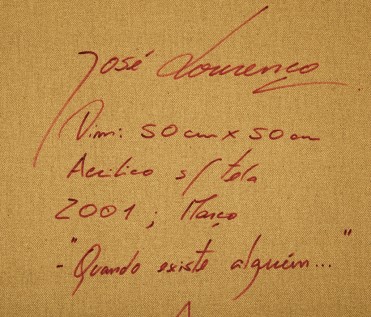 José Lourenço
Dim: 50cm x 50cm
Acrílico s/ tela
2001 ; Março
- "Quando existe alguém..."